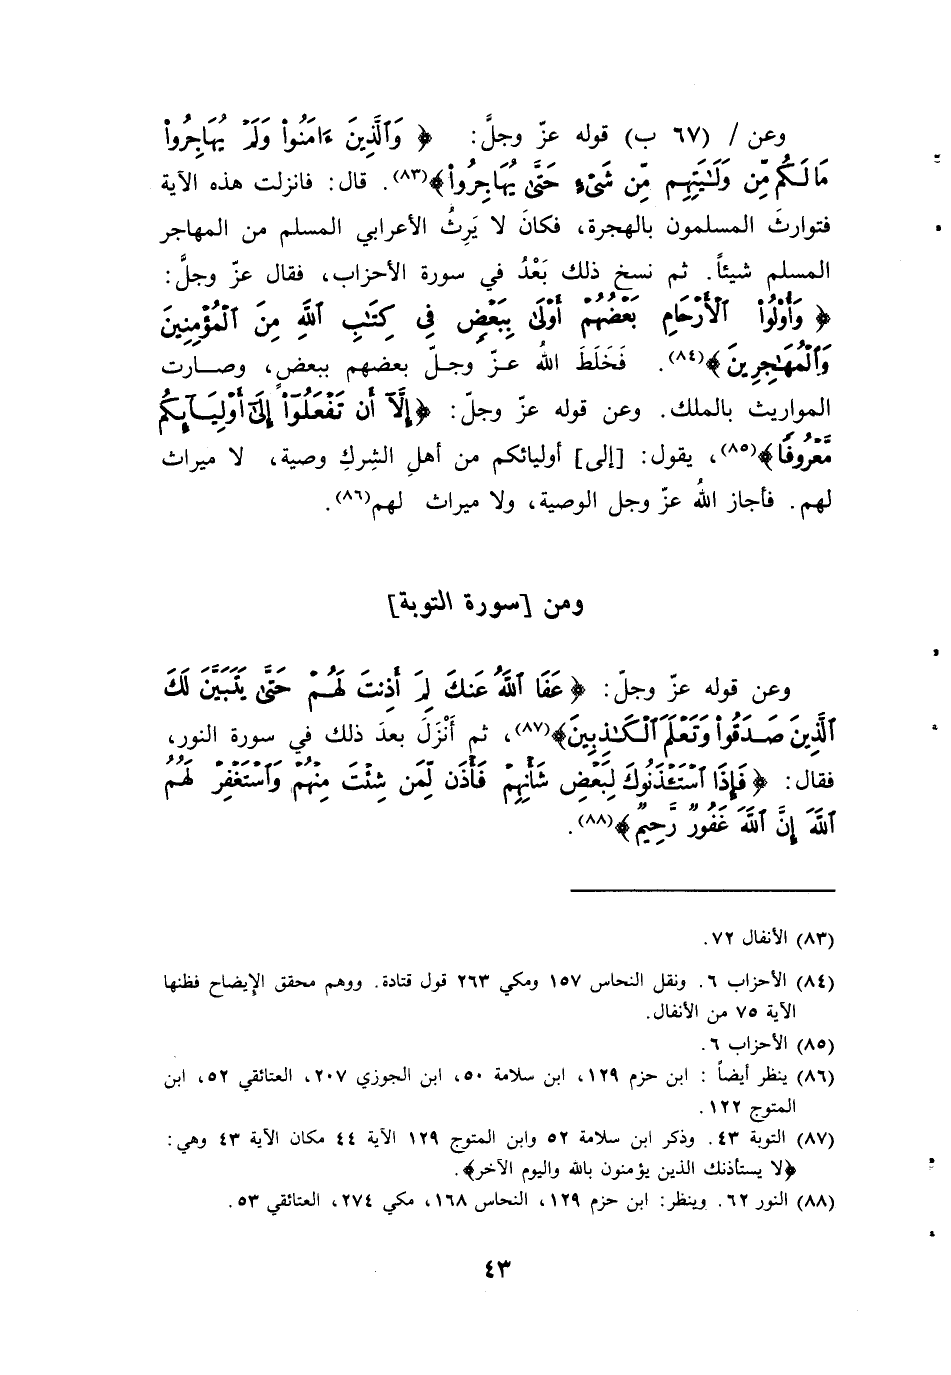 وعن / (٦٧ ب) قوله عزّ وجلَّ: ﴿ وَٱلَّذِينَ ءَامَنُوا۟ وَلَمْ يُهَاجِرُوا۟
مَا لَكُم مِّن وَلَـٰيَتِهِم مِّن شَىْءٍ حَتَّىٰ يُهَاجِرُوا۟ ﴾(٨٣). قال: فانزلت هذه الآية
فتوارثَ المسلمون بالهجرة، فكانَ لا يَرِثُ الأعرابي المسلم من المهاجر
المسلم شيئاً. ثم نسخ ذلك بَعْدُ في سورة الأحزاب، فقال عزّ وجلَّ:
﴿ وَأُو۟لُوا۟ ٱلْأَرْحَامِ بَعْضُهُمْ أَوْلَىٰ بِبَعْضٍ فِى كِتَـٰبِ ٱللَّهِ مِنَ ٱلْمُؤْمِنِينَ
وَٱلْمُهَـٰجِرِينَ ﴾(٨٤). فَخَلَطَ اللهُ عـزّ وجـلّ بعضهم ببعضٍ، وصـارت
المواريث بالملك. وعن قوله عزّ وجلّ: ﴿ إِلَّآ أَن تَفْعَلُوٓا۟ إِلَىٰٓ أَوْلِيَآئِكُم
مَّعْرُوفًا ﴾(٨٥)، يقول: [إلى] أوليائكم من أهلِ الشِركِ وصية، لا ميراث
لهم. فأجاز اللهُ عزّ وجل الوصية، ولا ميراث لهم(٨٦).
ومن [سورة التوبة]
وعن قوله عزّ وجلّ: ﴿ عَفَا ٱللَّهُ عَنكَ لِمَ أَذِنتَ لَهُمْ حَتَّىٰ يَتَبَيَّنَ لَكَ
ٱلَّذِينَ صَدَقُوا۟ وَتَعْلَمَ ٱلْكَـٰذِبِينَ ﴾(٨٧)، ثم أَنْزَلَ بعدَ ذلك في سورة النور،
فقال: ﴿ فَإِذَا ٱسْتَـْٔذَنُوكَ لِبَعْضِ شَأْنِهِمْ فَأْذَن لِّمَن شِئْتَ مِنْهُمْ وَٱسْتَغْفِرْ لَهُمُ
ٱللَّهَ إِنَّ ٱللَّهَ غَفُورٌ رَّحِيمٌ ﴾(٨٨).
(٨٣) الأنفال ٧٢.
(٨٤) الأحزاب ٦. ونقل النحاس ١٥٧ ومكي ٢٦٣ قول قتادة. ووهم محقق الإيضاح فظنها
الآية ٧٥ من الأنفال.
(٨٥) الأحزاب ٦.
(٨٦) ينظر أيضاً : ابن حزم ١٢٩، ابن سلامة ٥٠، ابن الجوزي ٢٠٧، العتائقي ٥٢، ابن
المتوج ١٢٢.
(٨٧) التوبة ٤٣. وذكر ابن سلامة ٥٢ وابن المتوج ١٢٩ الآية ٤٤ مكان الآية ٤٣ وهي:
﴿لا يستأذنك الذين يؤمنون بالله واليوم الآخر﴾.
(٨٨) النور ٦٢. وينظر: ابن حزم ١٢٩، النحاس ١٦٨، مكي ٢٧٤، العتائقي ٥٣.
٤٣